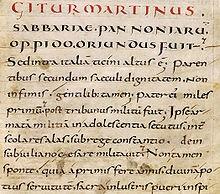 GITUR MARTINUS
SABBARIAE. PANNONIARU
OPPIDO. ORIUNDUS FUIT
Sed intra italia ticini altus e. paren
tibus secundum saeculi dignitatem. Non
infimis. gentilib; tamen; Pater ei miles
primu post tribunus militu fuit, Ipse ar
mata militia in adolescentia secutus int
scolares alas. sub rege constantio. dein
sub iuliano cesare militavit; Non tamen
sponte. quia a primis fere annis divinapo
tius servitute. sacra inlustris pueri inspi